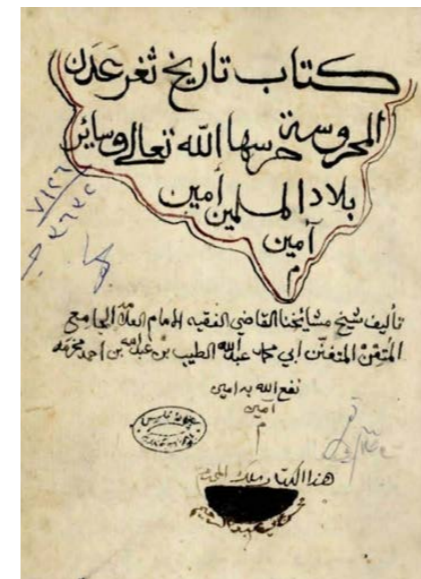 كتاب تاريخ ثغر عدن
المحروسة حرسها الله تعالى وسائر
بلاد المسلمين امين
آمين
م
تأليف شيخ مشائخنا القاضى الفقيه الامام العلامة الجامع
المتقن المتفنن ابي محمد عبدالله الطيب بن عبدالله بن احمد مخرمه
نفع الله به امين
آمين
م
هذا الكتاب ملك المحترم